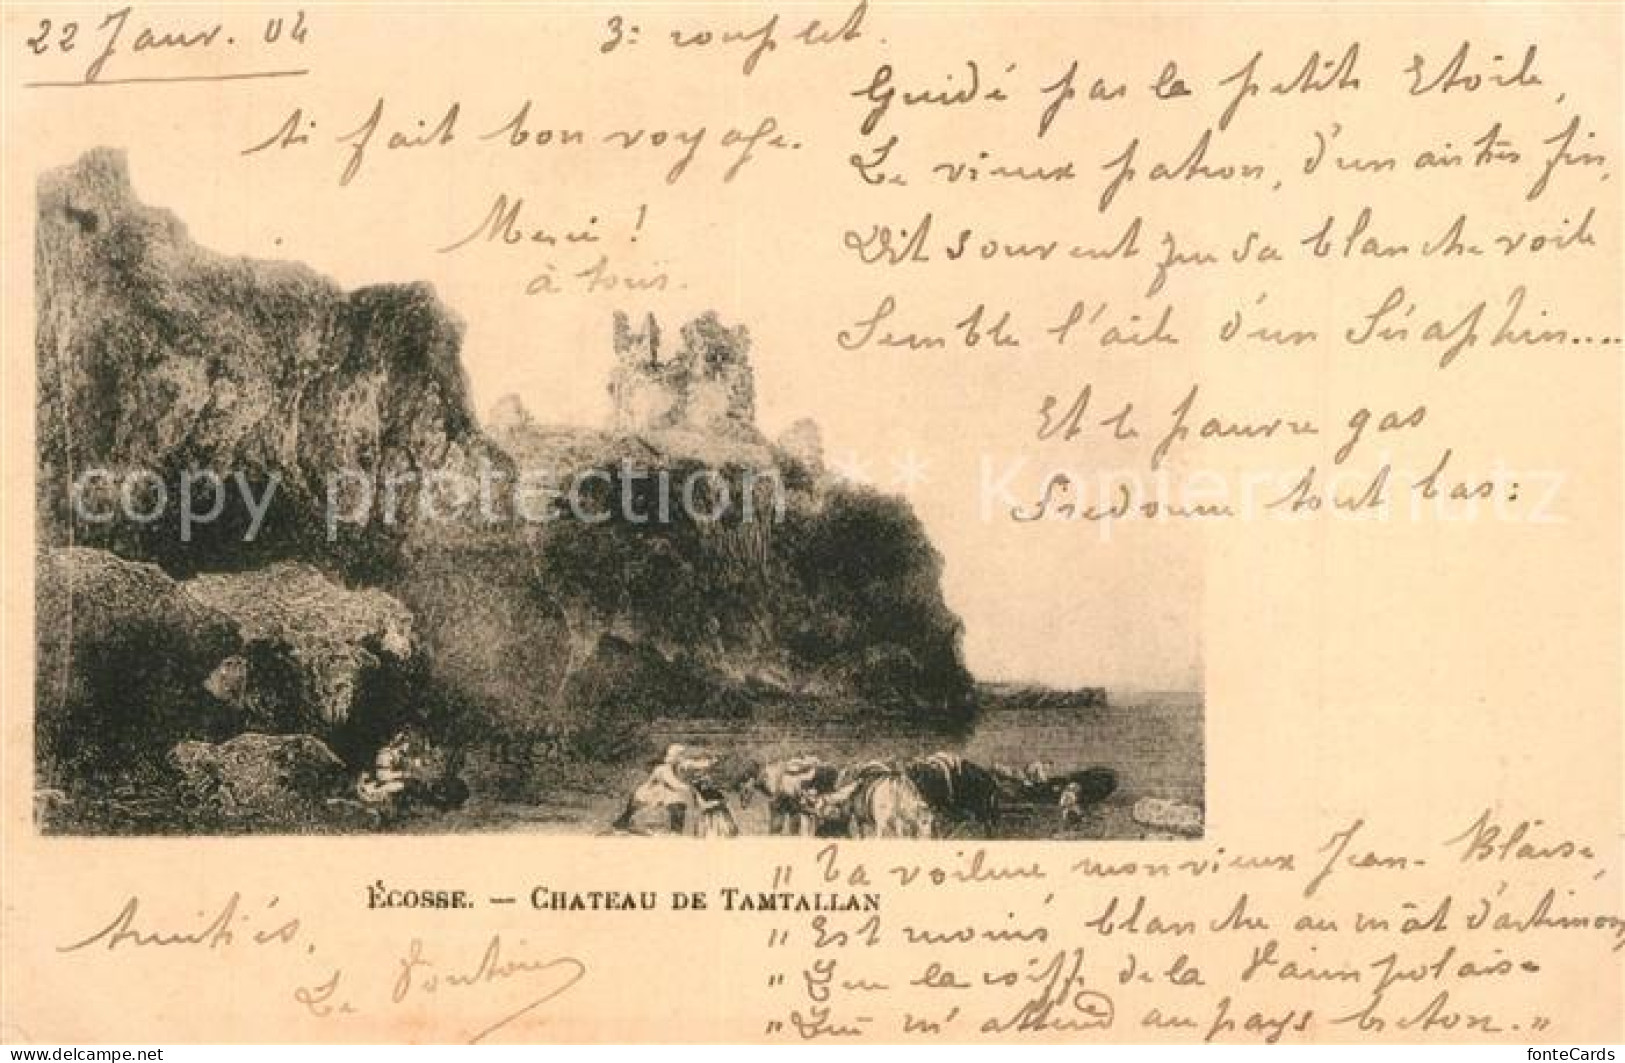 22 Janv. 04
3e couplet.
ai fait bon voyage.
Merci !
à tous.
Guidé par la petite Etoile,
Le vieux patron, d'un air très fin,
Dit souvent que sa blanche voile
Semble l'aile d'un Séraphin....
Et le pauvre gas
Fredonne tout bas :
copy protection ** Kopierschutz
ÉCOSSE. — CHATEAU DE TAMTALLAN
" Ta voilure mon vieux Jean-Blaise,
" Est moins blanche au mât d'artimon
" Que la coiffe de la Paimpolaise
" Qui m'attend au pays breton. "
Amitiés,
Le
delcampe.net
fonteCards